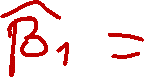 β̂₁ =